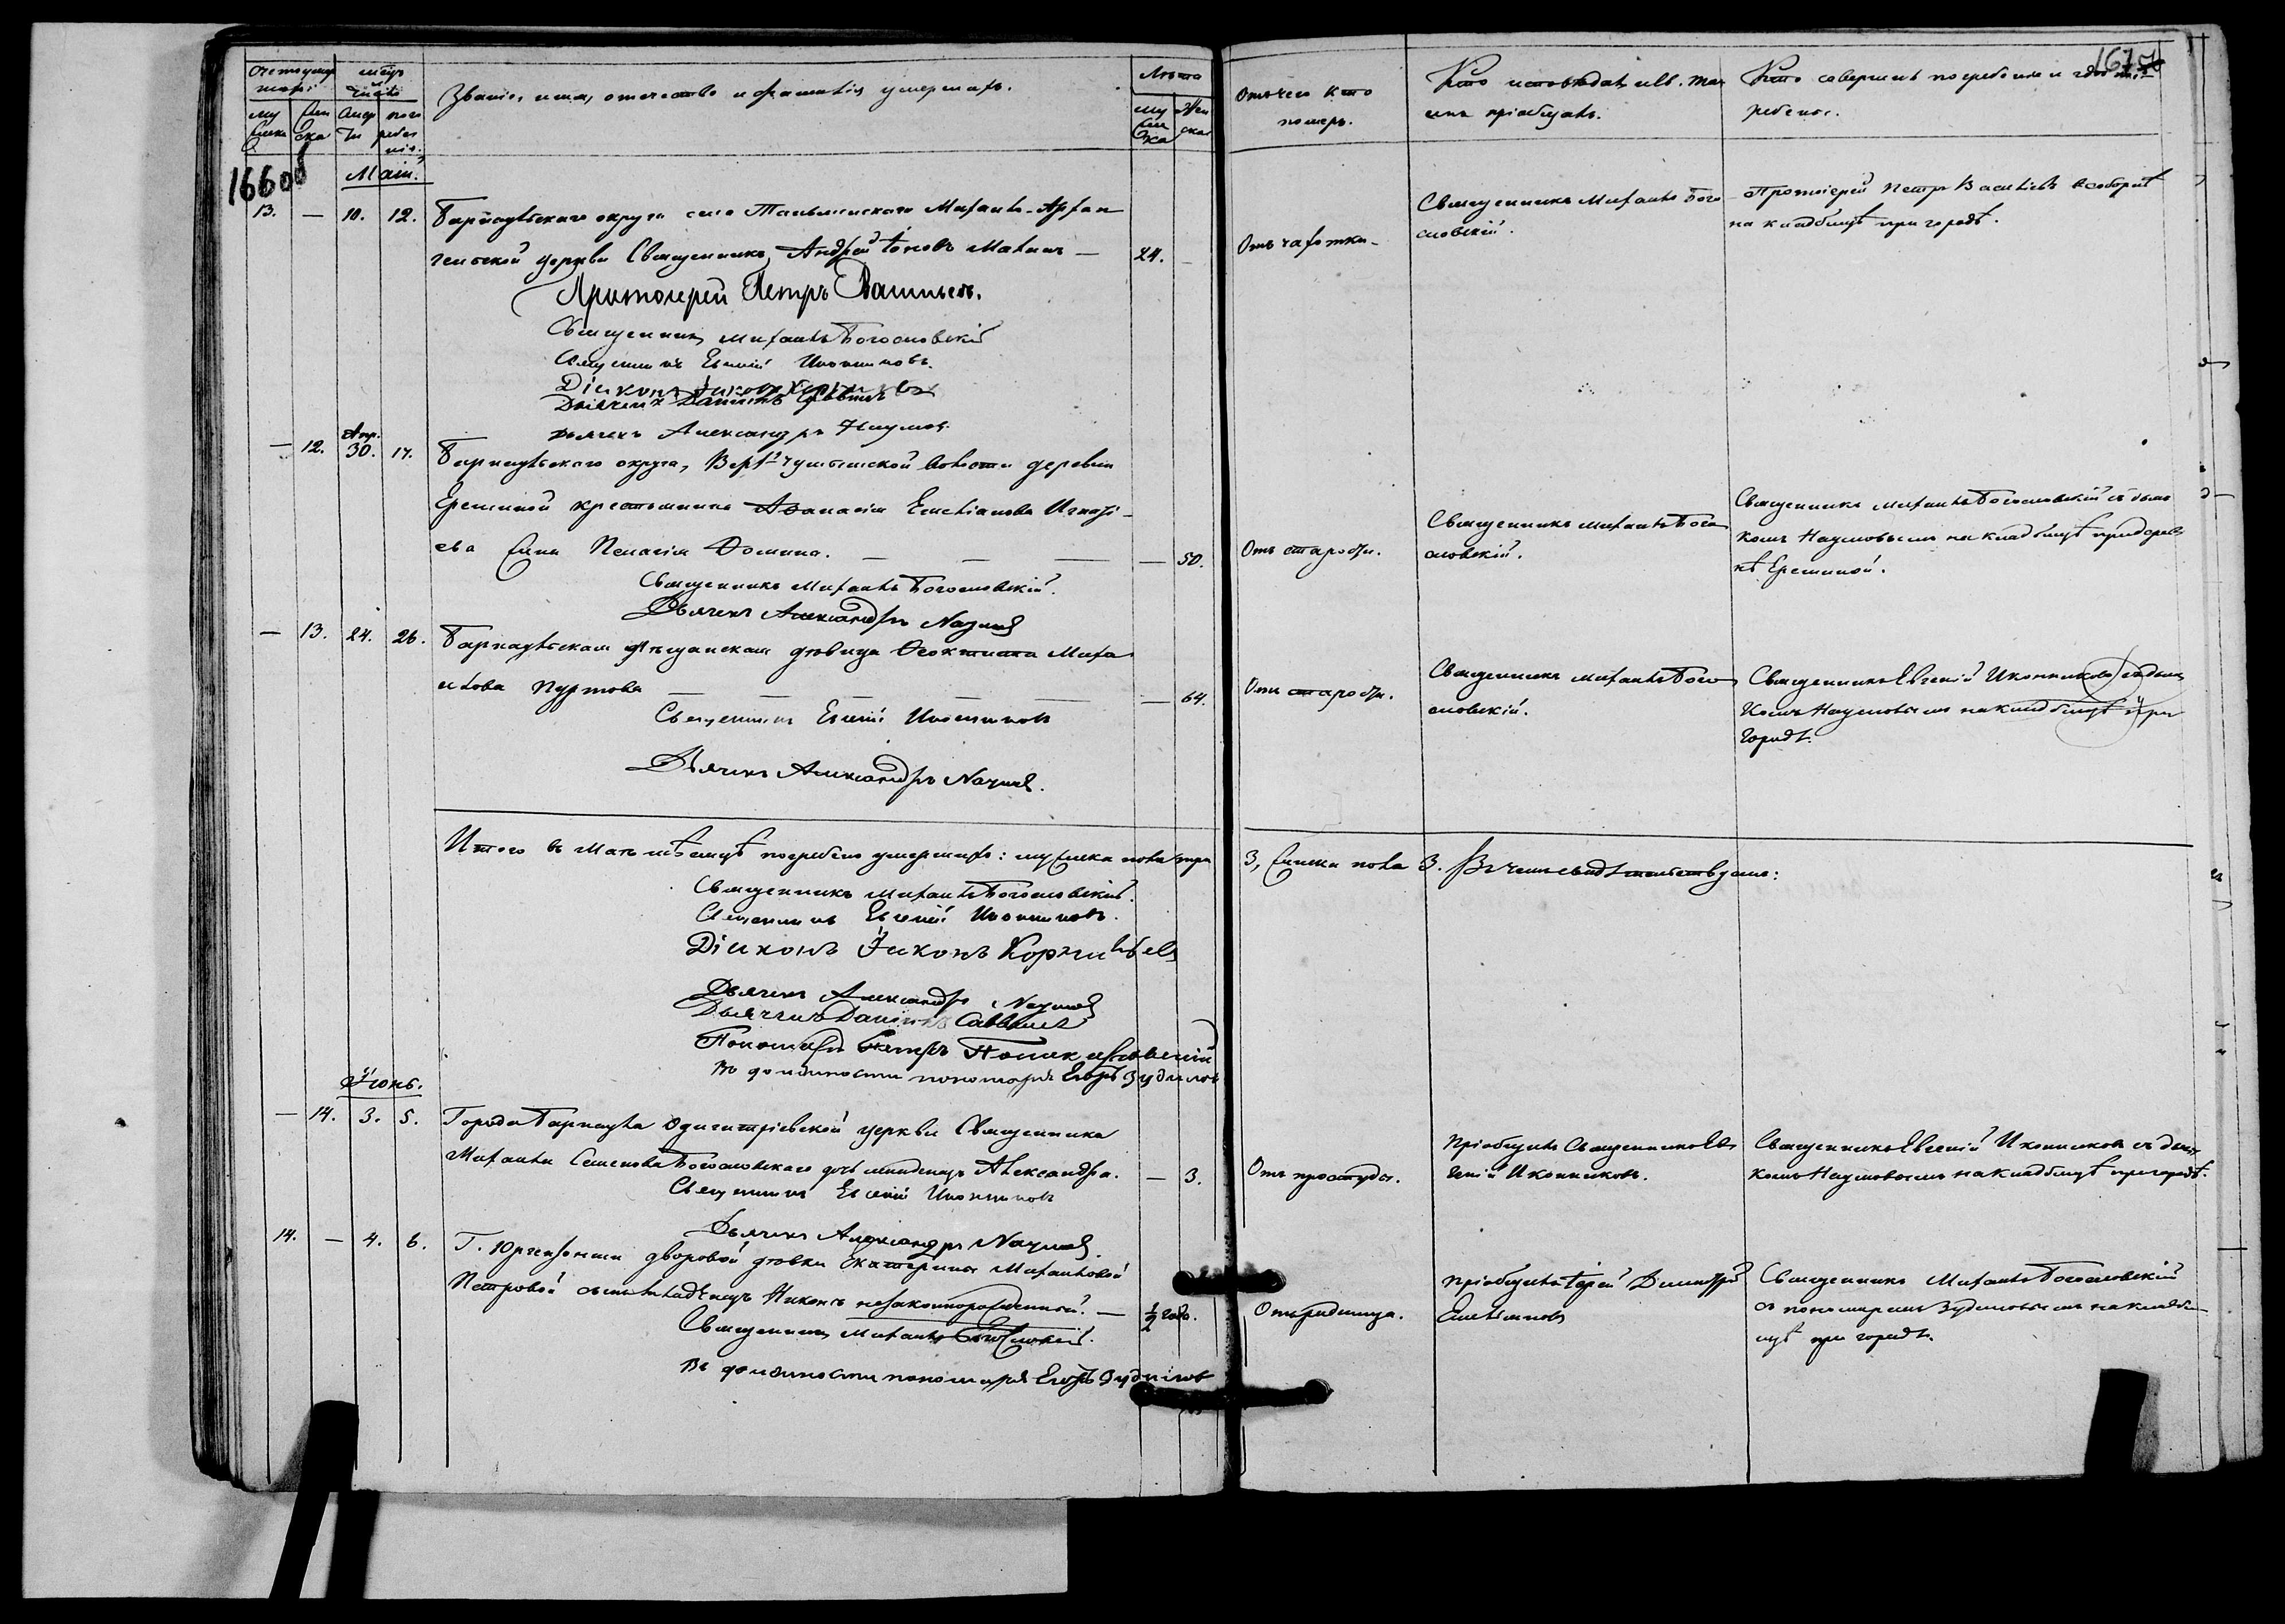 Счетъ умер
шихъ
мѣсяцъ
и
число
Званіе, имя, отечество и фамилія умершихъ.
Лѣта
Му
жеска
Жен
ска
смер
ти
погре
бенія
му
жес
ка
Жен
ска
Отъ чего кто
померъ.
Кто исповѣдалъ и Св. тай
ны пріобщалъ.
Кто совершилъ погребеніе и гдѣ пог
ребены.
167
166об
Май.
13. — 10. 12. Барнаульскаго округа села Тальменскаго Михаило-Архан
гельской церкви Священникъ Андрей Іоновъ Малинъ — 24. —
Отъ чахотки
Священникъ Михаилъ Бого
словскій.
Протоіерей Петръ Васильевъ
на кладбищѣ при городѣ.
Протоіерей Петръ Васильевъ.
Священникъ Михаилъ Богословскій
Священникъ Евгеній Иконниковъ.
Діаконъ
Дьячекъ Даніилъ
Дьячекъ Александръ Наумовъ
Апр.
— 12. 30. 17. Барнаульскаго округа, Верхъ-Чумышской волости деревни
Ересиной крестьянина Аѳанасія Емельянова Игнать
ева жена Пелагія Ѳомина. — — — — 50.
Отъ старости.
Священникъ Михаилъ Бого
словскій.
Священникъ Михаилъ Богословскій съ дьяч
комъ Наумовымъ на кладбищѣ при дерев
нѣ Ересиной.
Священникъ Михаилъ Богословскій.
Дьячекъ Александръ Наумовъ
— 13. 24. 26. Барнаульская мѣщанская дѣвица Ѳеоктиста Миха
илова Пуртова — — — — — 64.
Отъ старости.
Священникъ Михаилъ Бого
словскій.
Священникъ Евгеній Иконниковъ съ дьяч
комъ Наумовымъ на кладбищѣ при
городѣ.
Священникъ Евгеній Иконниковъ
Дьячекъ Александръ Наумовъ.
Итого въ Маѣ мѣсяцѣ погребено умершихъ: мужеска пола три
3, женска пола 3. Въ чемъ свидѣтельствуемъ:
Священникъ Михаилъ Богословскій.
Священникъ Евгеній Иконниковъ.
Діаконъ
Дьячекъ Александръ Наумовъ
Дьячекъ Даніилъ
Пономарь
Въ должности пономаря Егоръ Зудиловъ
Іюнь.
— 14. 3. 5. Города Барнаула Одигитріевской церкви Священника
Михаила Семенова Богословскаго дочь младенецъ Александра. — 3.
Отъ простуды.
Пріобщилъ Священникъ Ев
геній Иконниковъ.
Священникъ Евгеній Иконниковъ съ дьяч
комъ Наумовымъ на кладбищѣ при городѣ.
Священникъ Евгеній Иконниковъ
Дьячекъ Александръ Наумовъ.
14. — 4. 6. Г. дворовой дѣвки Екатерины Михайловой
Петровой сынъ младенецъ Никонъ незаконнорожденной. — ½ года.
Отъ родимца.
Пріобщилъ Іерей Димитрій
Священникъ Михаилъ Богословскій
съ пономаремъ Зудиловымъ на кладби
щѣ при городѣ.
Священникъ Михаилъ Богословскій.
Въ должности пономаря Егоръ Зудиловъ